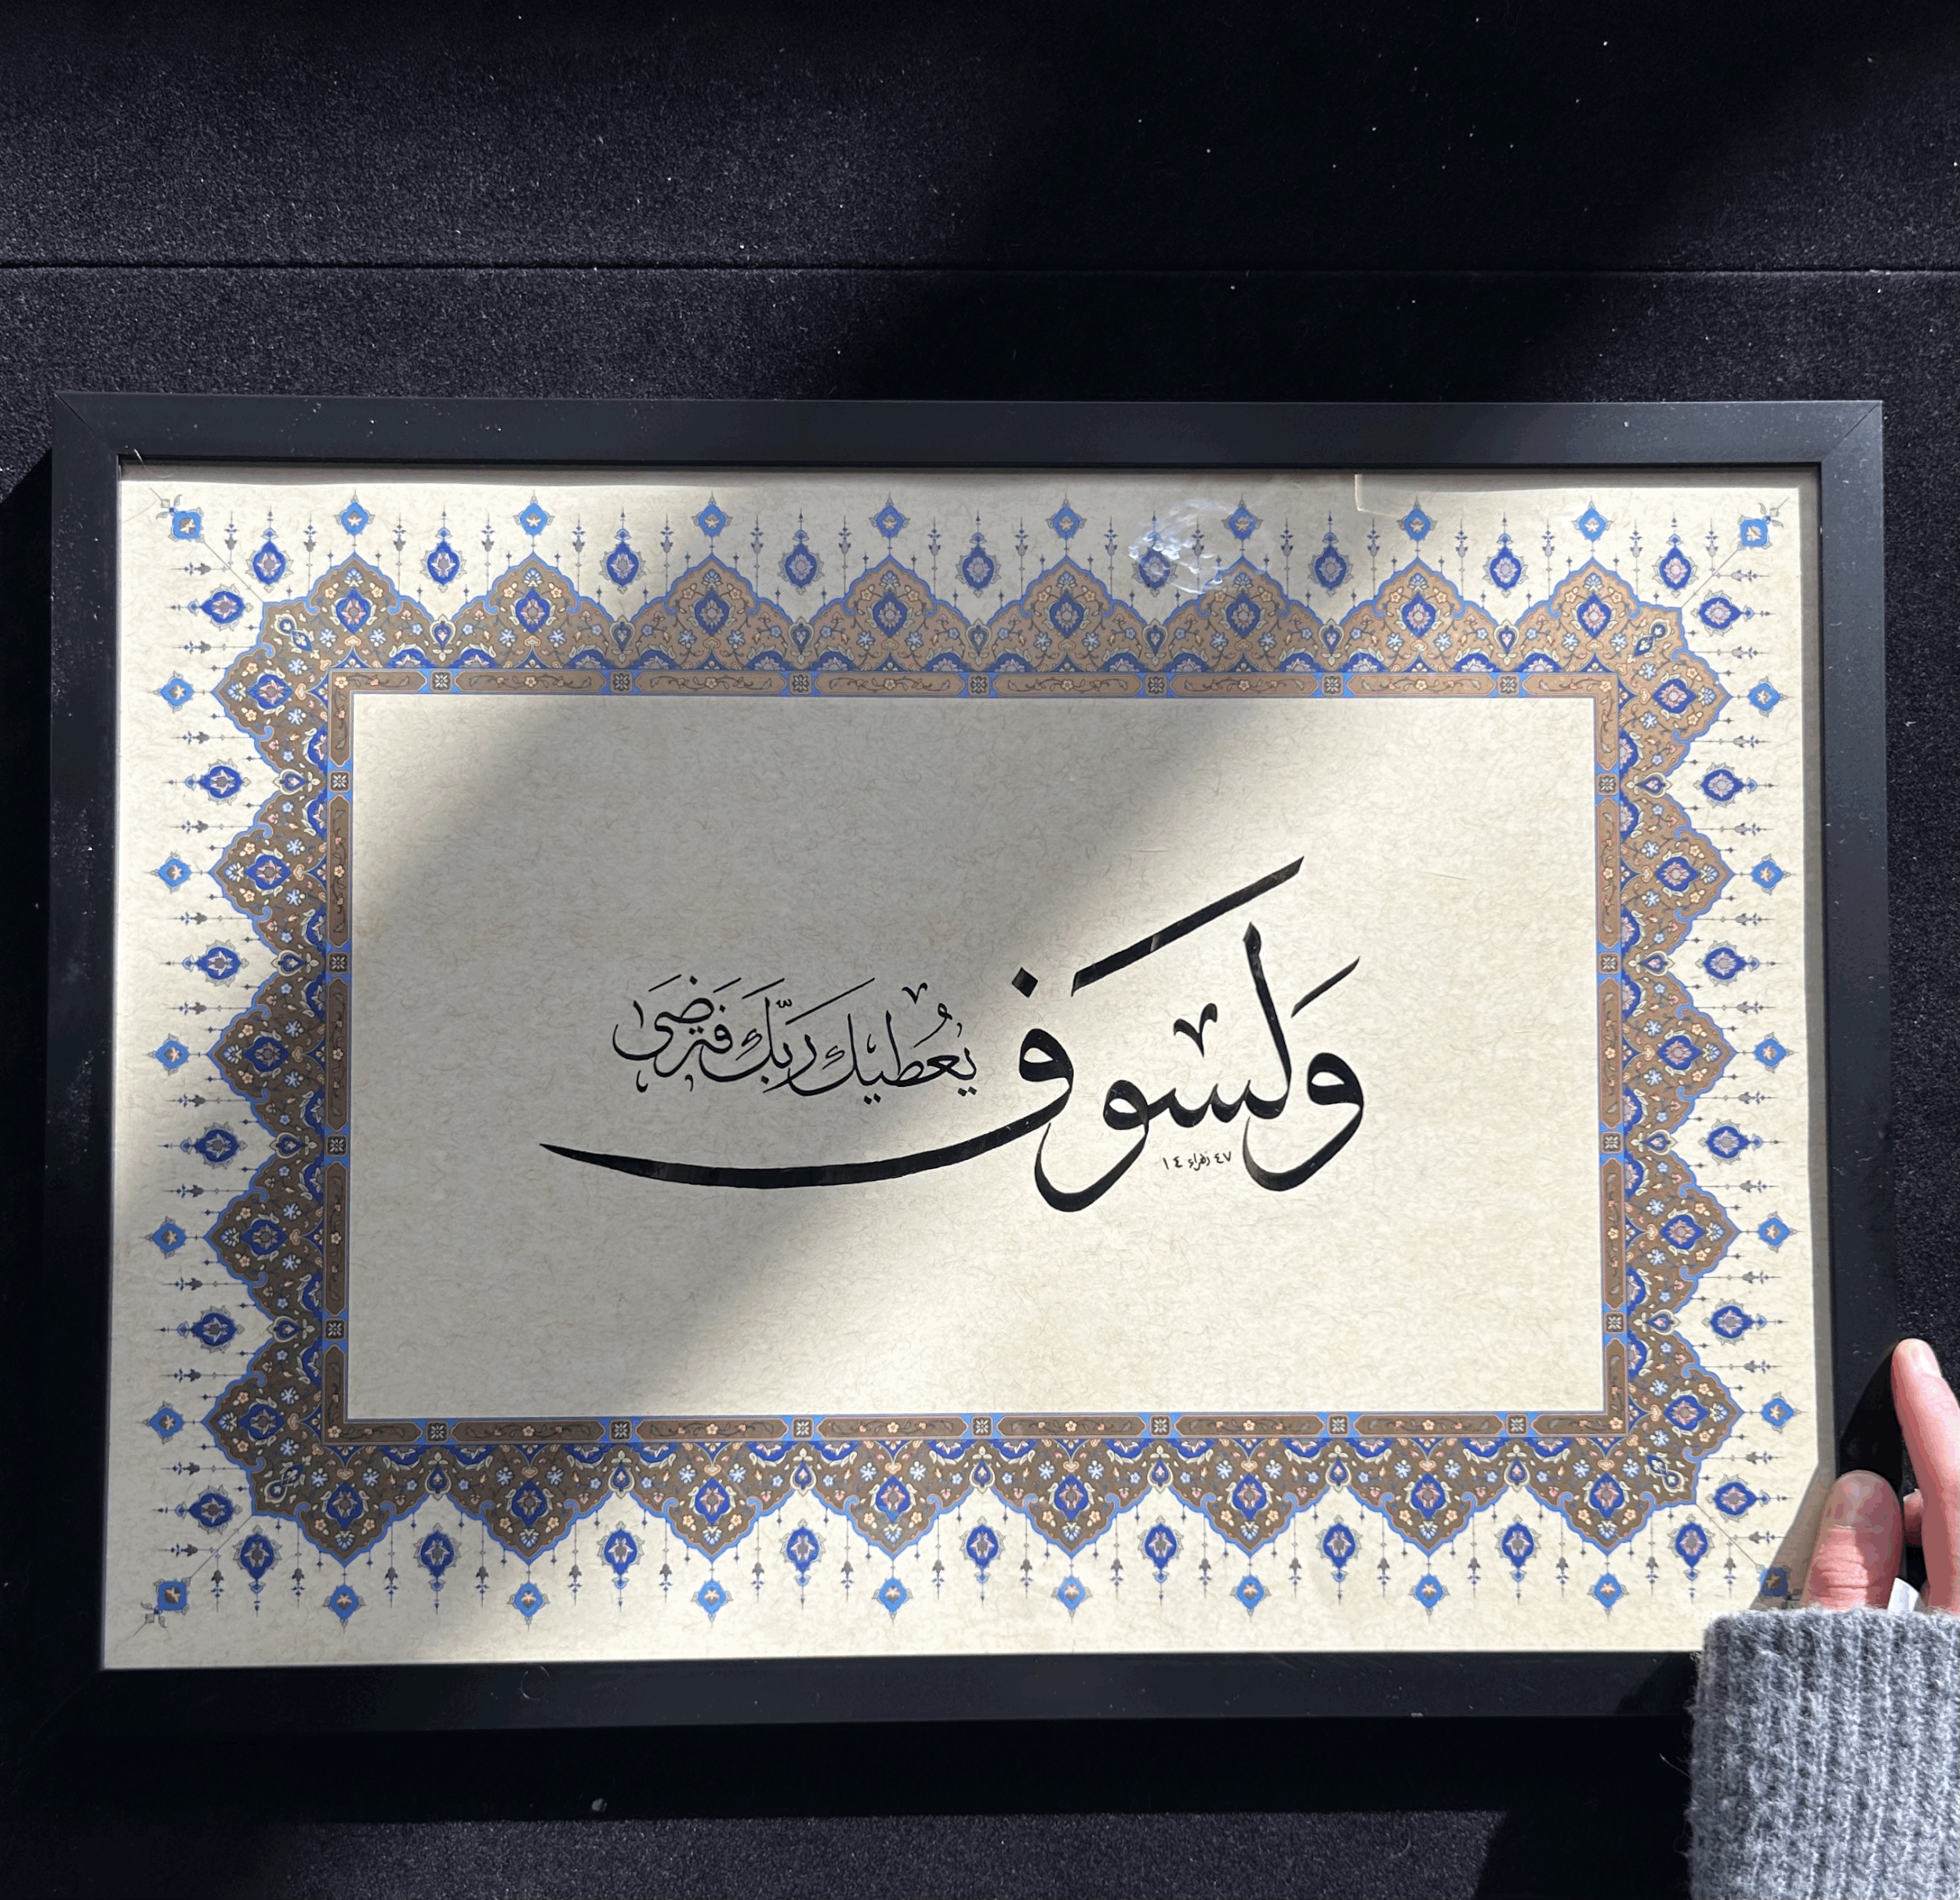 وَلَسوف يُعطيكَ رَبُّكَ فَتَرضَىٰ
زهراء